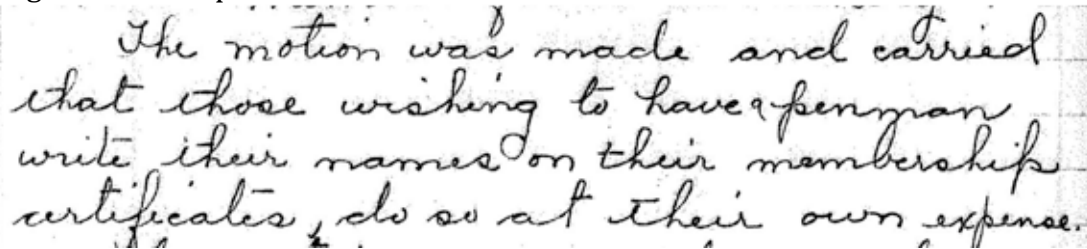 The motion was made and carried
that those wishing to have a penman
write their names on their membership
certificates, do so at their own expense.